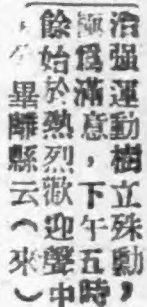 治强運動樹立殊勳，
極爲滿意，下午五時
餘始於熱烈歡迎聲中
畢歸縣云（來）